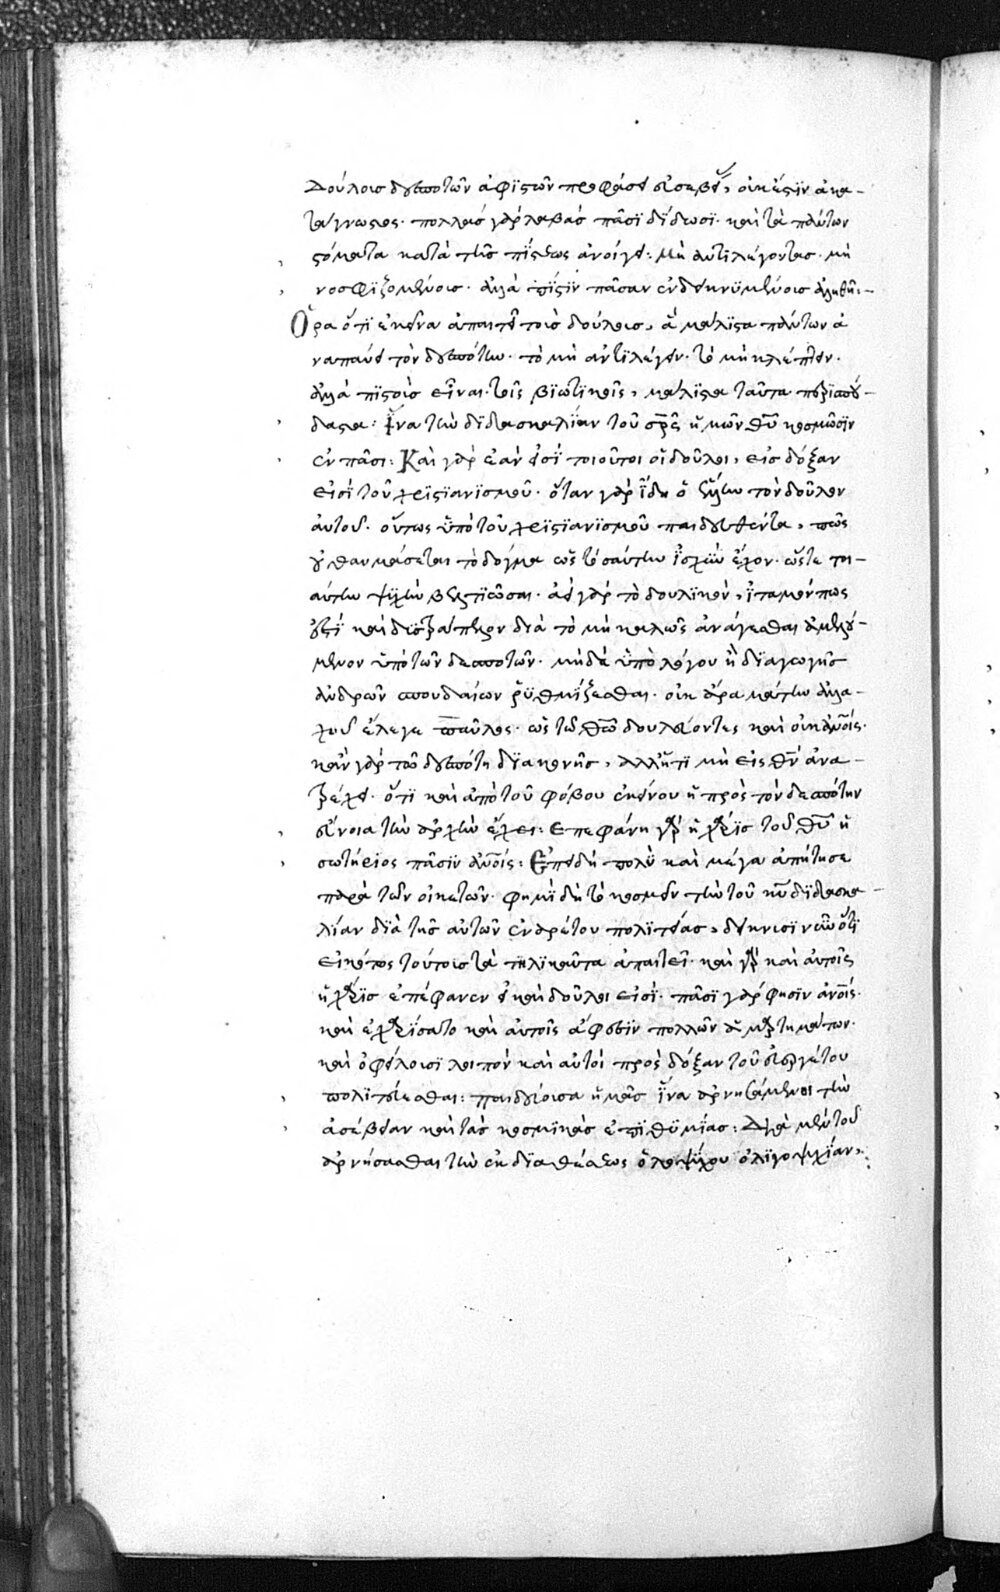 δούλους δεσποτῶν ἀφιστῶν προφάσει εὐσεβεί, οὐκ ἔστιν ἀκα-
τάγνωστος. πολλὰς γὰρ λαβὰς πᾶσι δίδωσι. καὶ τὰ πάντων
στόματα κατὰ τῆς πίστεως ἀνοίγει: Μὴ ἀντιλέγοντας. μὴ
νοσφιζομένους. ἀλλὰ πίστιν πᾶσαν ἐνδεικνυμένους ἀγαθήν:-
Ὅρα ὅτι ἐκεῖνα ἀπαιτεῖ τοὺς δούλους, ἃ μάλιστα πάντων ἀ
ναπαύει τὸν δεσπότην. τὸ μὴ ἀντιλέγειν. τὸ μὴ κλέπτειν.
ἀλλὰ πιστοὺς εἶναι. τοῖς βιωτικοῖς, μάλιστα ταῦτα περισπού-
δαστα: Ἵνα τὴν διδασκαλίαν τοῦ σρς ἡμῶν θυ κοσμῶσιν
ἐν πᾶσι: Καὶ γὰρ ἐὰν ὦσι τοιοῦτοι οἱ δοῦλοι, εἰς δόξαν
εἰσὶ τοῦ χριστιανισμοῦ. ὅταν γὰρ ἴδη ὁ ἕλλην τὸν δοῦλον
αὐτοῦ. οὕτως ὑπὸ τοῦ χριστιανισμοῦ παιδευθέντα, πῶς
οὐ θαυμάσεται τὸ δόγμα ὡς τοσαύτην ἰσχὺν ἔχον. ὥστε τοι-
αύτην ψυχὴν βελτιῶσαι. ἀεὶ γὰρ τὸ δουλικὸν, ἰταμόν πως
ἐστὶ καὶ δυσδιάπλαστον διὰ τὸ μὴ καλῶς ἀνάγεσθαι ἀμελού-
μενον ὑπὸ τῶν δεσποτῶν. μηδὲ ὑπὸ λόγου ἢ διαγωγῆς
ἀνδρῶν σπουδαίων ῥυθμίζεσθαι. οὐκ ἄρα μάτην ἀλλα-
χοῦ ἔλεγε παῦλος. ὡς τῶ θω δουλεύοντες καὶ οὐκ ἀνοις.
κἂν γὰρ τῶ δεσπότη διακονῆς, ἀλλ' ἡ τιμὴ εἰς θν ἀνα-
τρέχει. ὅτι καὶ ἀπὸ τοῦ φόβου ἐκείνου ἡ πρὸς τὸν δεσπότην
εὔνοια τὴν ἀρχὴν ἔχει: Ἐπεφάνη γὰρ ἡ χάρις τοῦ θυ ἡ
σωτήριος πᾶσιν ἀνοις: Ἐπειδὴ πολὺ καὶ μέγα ἀπήτησε
παρὰ τῶν οἰκετῶν. φημὶ δὴ τὸ κοσμεῖν τὴν τοῦ κυ διδασκα-
λίαν διὰ τῆς αὐτῶν ἐναρέτου πολιτείας, δείκνυσι νῦν ὅτι
εἰκότως τούτους τὰ τηλικαῦτα ἀπαιτεῖ. καὶ γὰρ καὶ αὐτοῖς
ἡ χάρις ἐπέφανεν εἰ καὶ δοῦλοι εἰσί. πᾶσι γάρ φησιν ἀνοις.
καὶ ἐχαρίσατο καὶ αὐτοῖς ἄφεσιν πολλῶν ἁμαρτημάτων.
καὶ ὀφείλουσι λοιπὸν καὶ αὐτοὶ πρὸς δόξαν τοῦ εὐεργέτου
πολιτεύεσθαι: παιδεύουσα ἡμᾶς ἵνα ἀρνησάμενοι τὴν
ἀσέβειαν καὶ τὰς κοσμικὰς ἐπιθυμίας: Διὰ μὲν τοῦ
ἀρνήσασθαι τὴν ἐκ διαθέσεως ὁλοψύχου ὀλιγοψυχίαν,